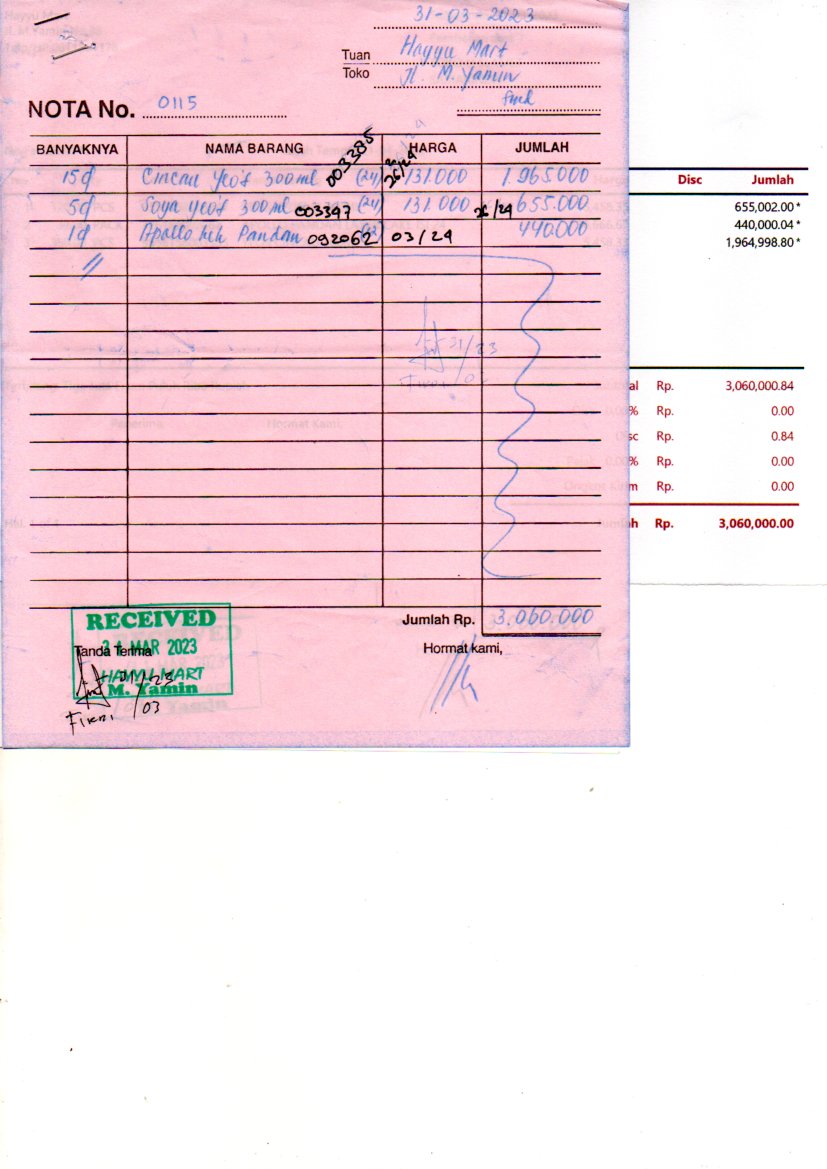 31-03-2023
Tuan Hayyu Mart
Toko Jl. M. Yamin
NOTA No. 0115
BANYAKNYA NAMA BARANG HARGA JUMLAH
15d Cincau Yeo's 300ml 003385 (24) 26/24 131.000 1.965.000
5d Soya Yeo's 300ml 003397 (24) 131.000 26/29 655.000
1d Apollo Pandan 092062 03/24 440.000
Disc Jumlah
655,002.00*
440,000.04*
1,964,998.80*
21/23
03
al Rp. 3,060,000.84
% Rp. 0.00
sc Rp. 0.84
% Rp. 0.00
m Rp. 0.00
h Rp. 3,060,000.00
Jumlah Rp. 3.060.000
Hormat kami,
RECEIVED
MAR 2023
Tanda Terima
HAYYU MART
M. Yamin
Fikri 03